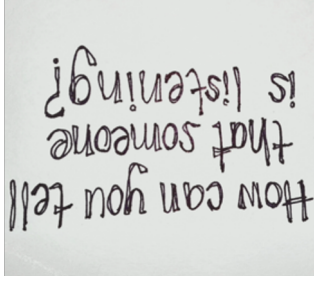 How can you tell
that someone
is listening?